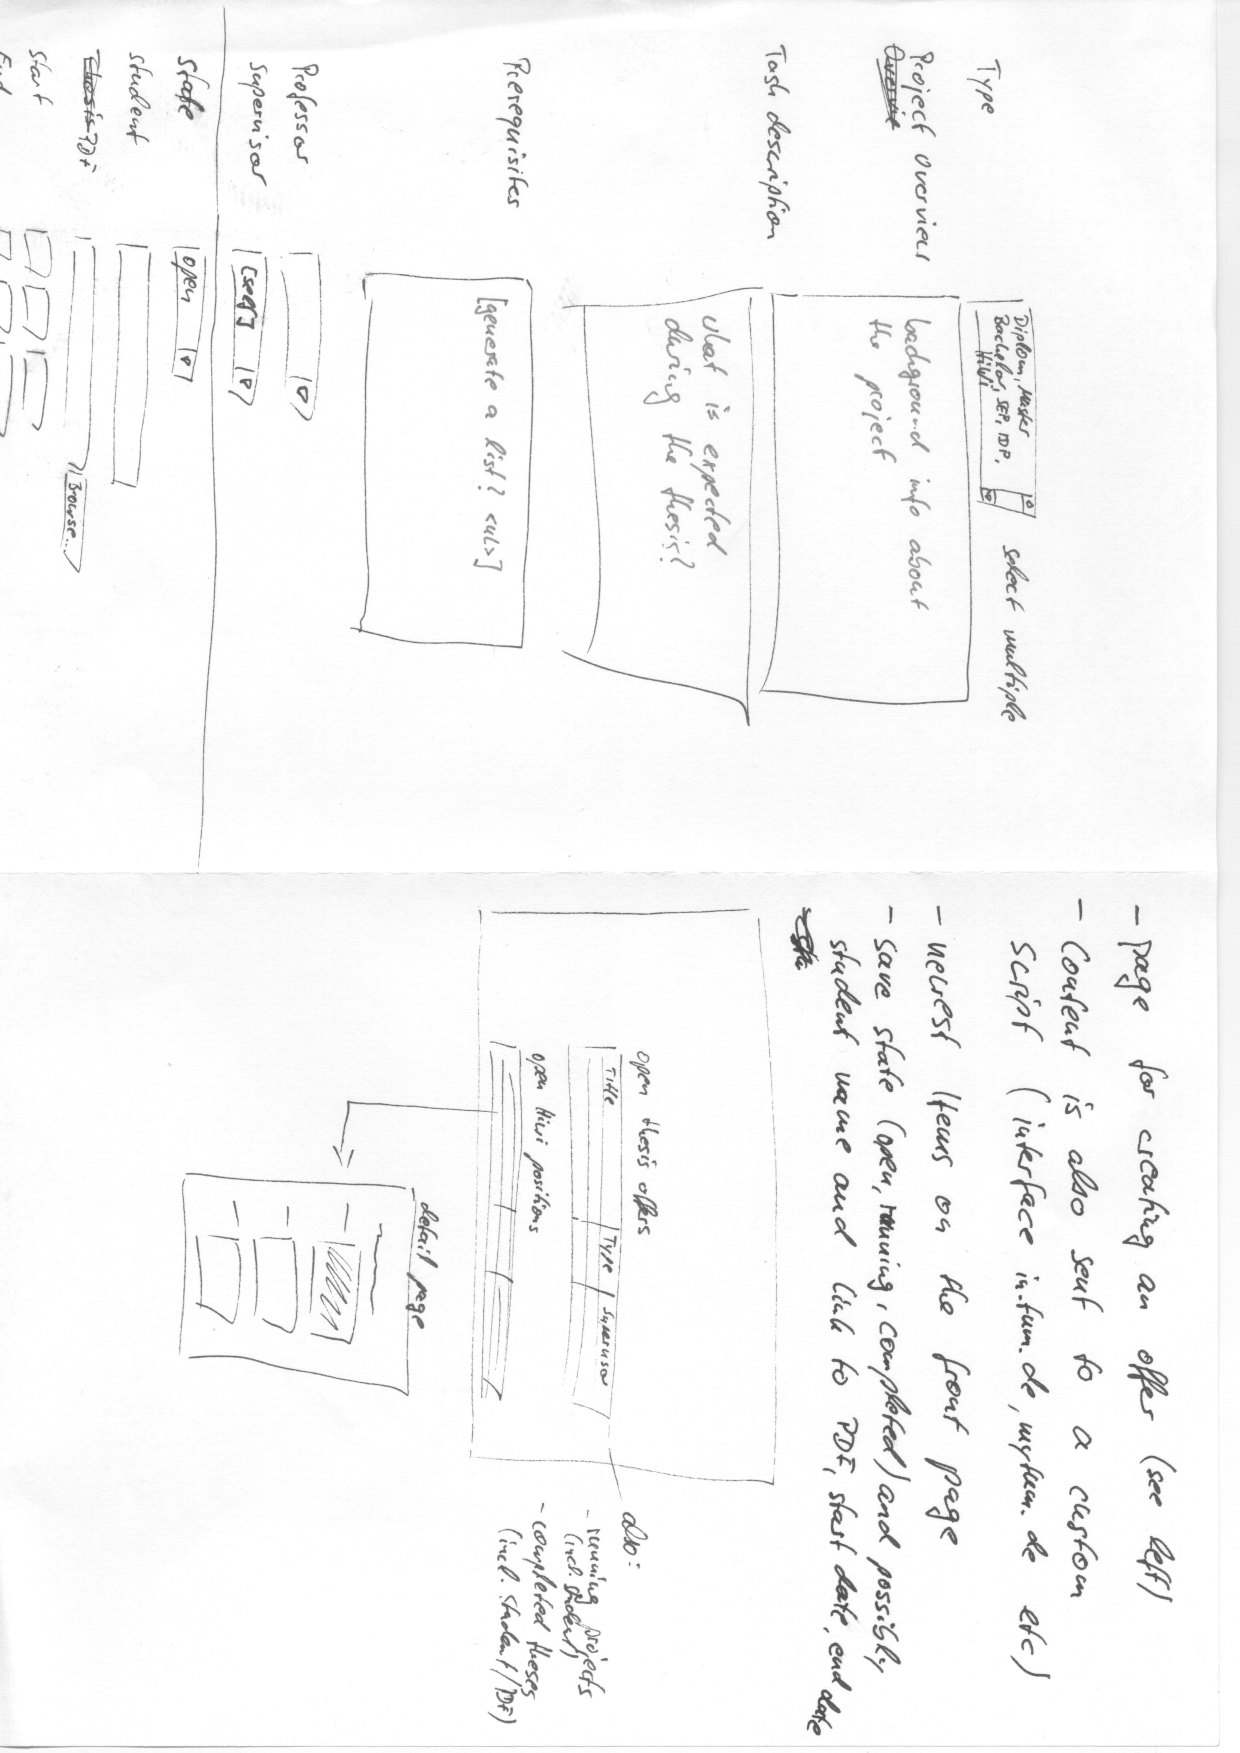 Type
Diplom, Master
Bachelor, SEP, IDP,
HiWi
select multiple
Project Overview
Overvie
background info about
the project
Task description
what is expected
during the thesis?
Prerequisites
[generate a list? <ul>]
Professor
Supervisor
[self]
State
open
student
Thesis PDF
Browse...
Start
End
- page for creating an offer (see left)
- Content is also sent to a custom
Script (interface in.tum.de, mytum.de etc)
- newest Items on the front page
- save state (open, running, completed) and possibly
student name and link to PDF, start date, end date
open thesis offers
Title Type Supervisor
open Hiwi positions
detail page
also:
- running projects
(incl. student)
- completed theses
(incl. student/PDF)